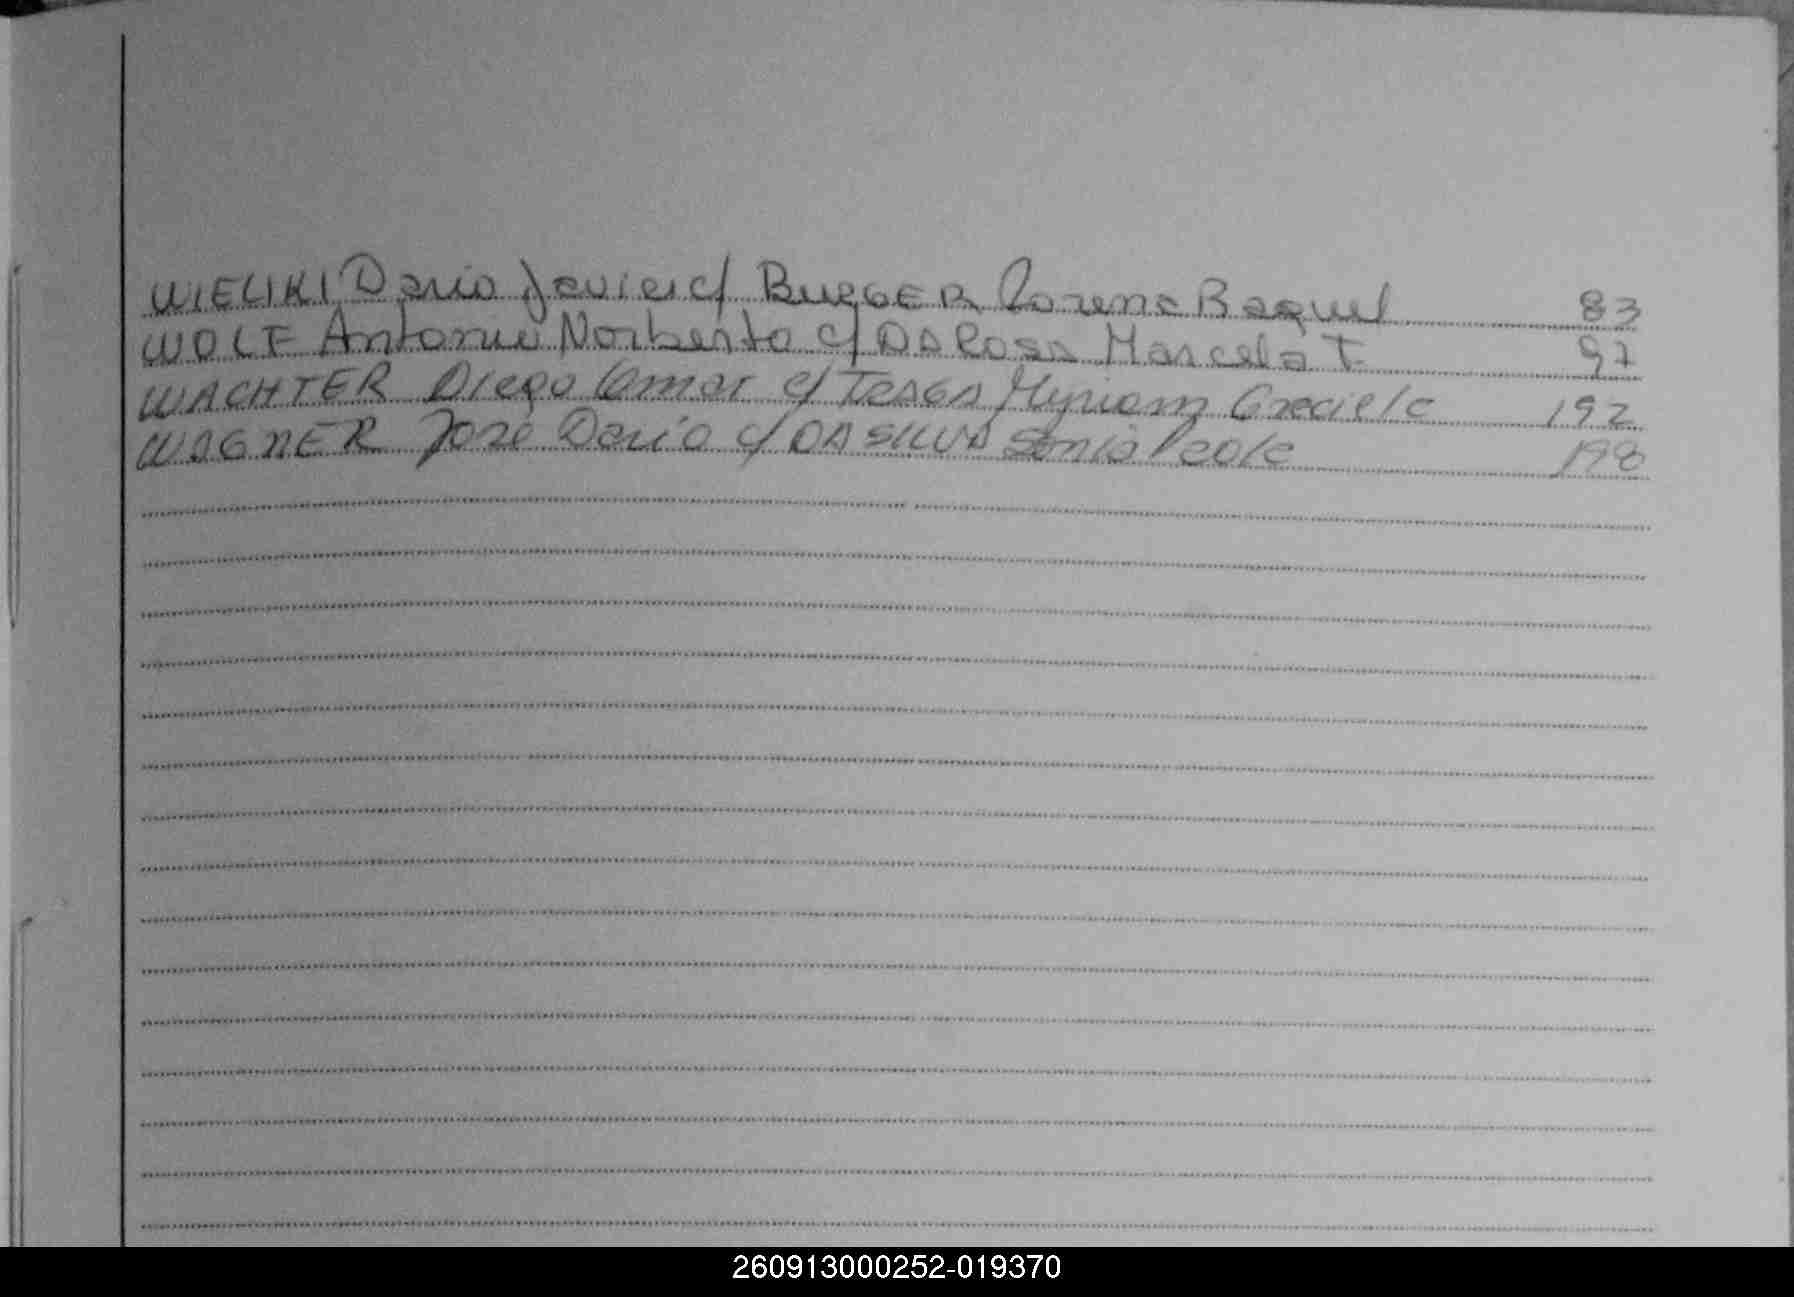 WIELIKI Dario Javier c/ BURGER Lorena Raquel 83
WOLF Antonio Norberto c/ DA ROSA Marcela T. 97
WACHTER Diego Omar c/ Myriam Graciela 192
WAGNER José Dario c/ DA SILVA Sonia Paola 198
260913000252-019370